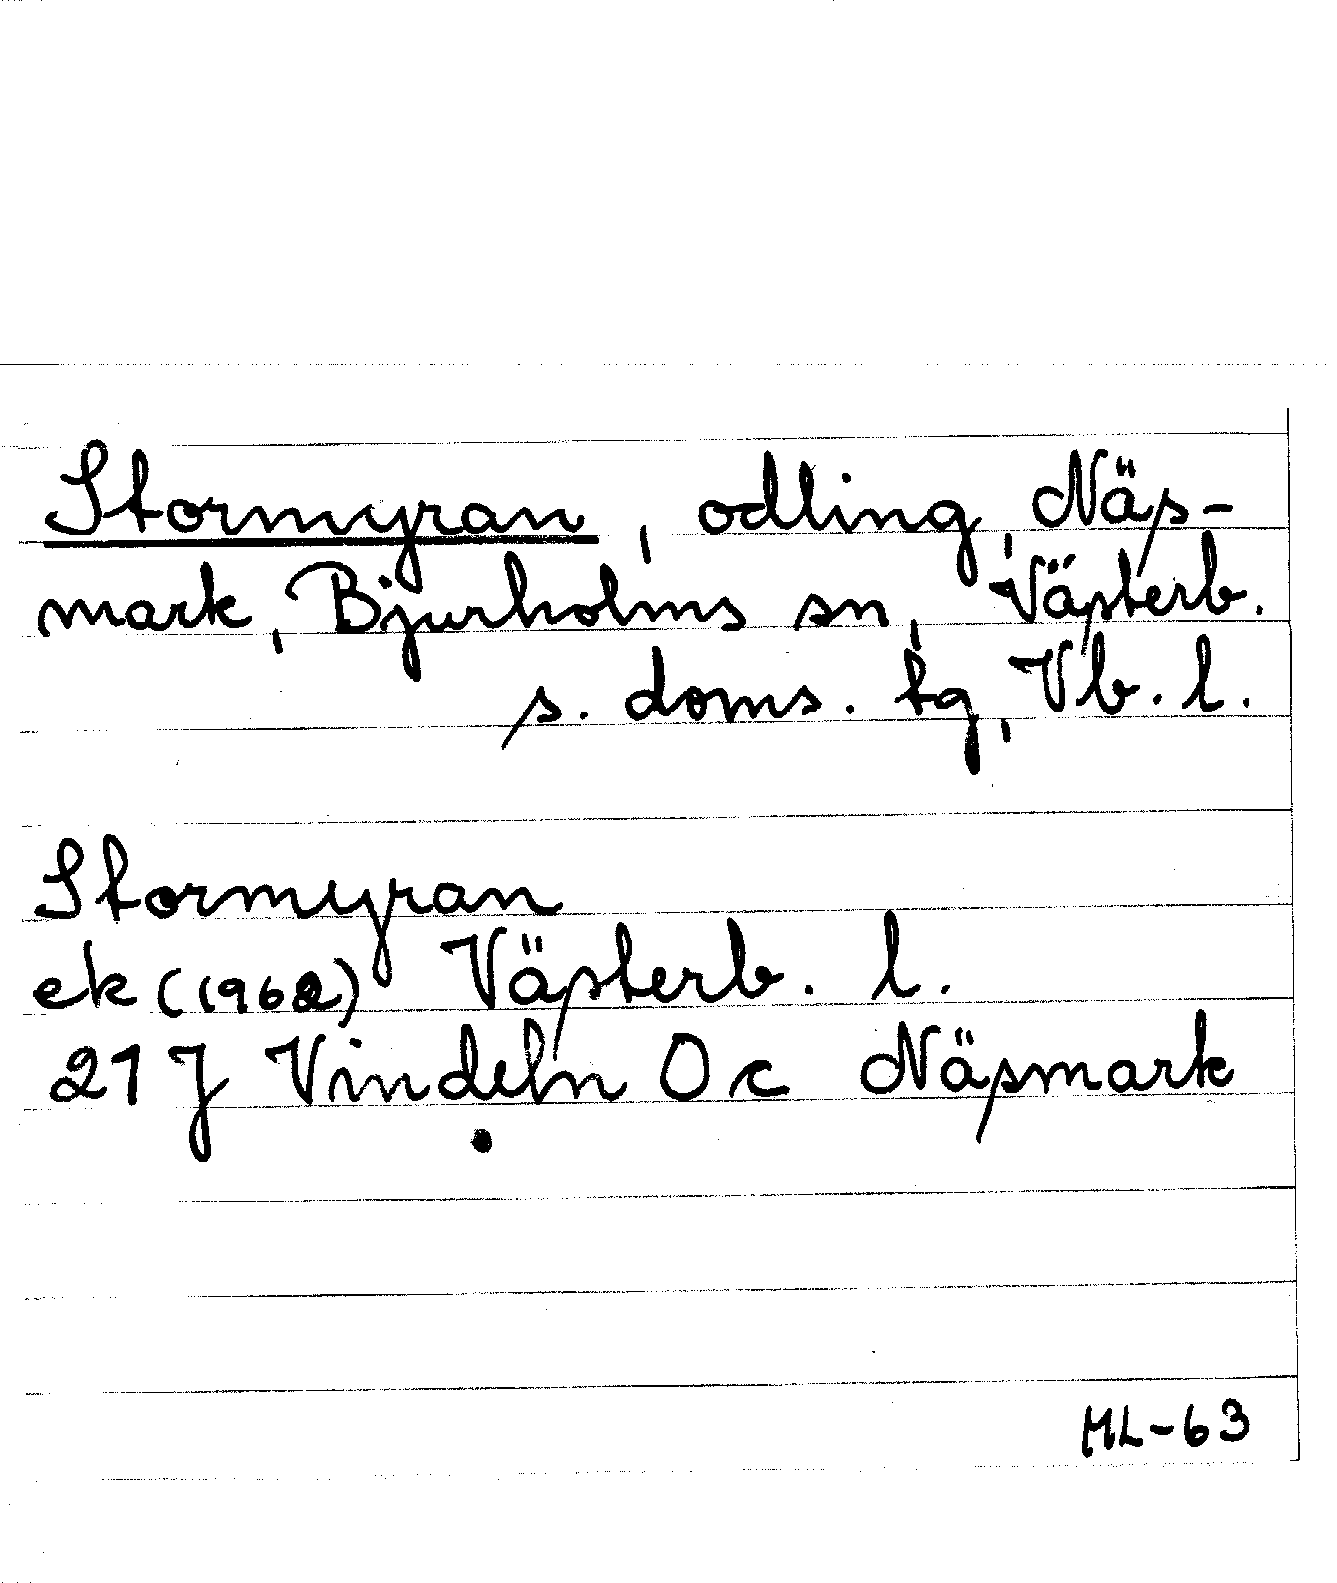 Stormyran, odling, Näs-
mark, Bjurholms sn, Västerb.
s. doms. tg, Vb. l.
Stormyran
ek (1962) Västerb. l.
21 J Vindeln 0 c Näsmark
ML-63